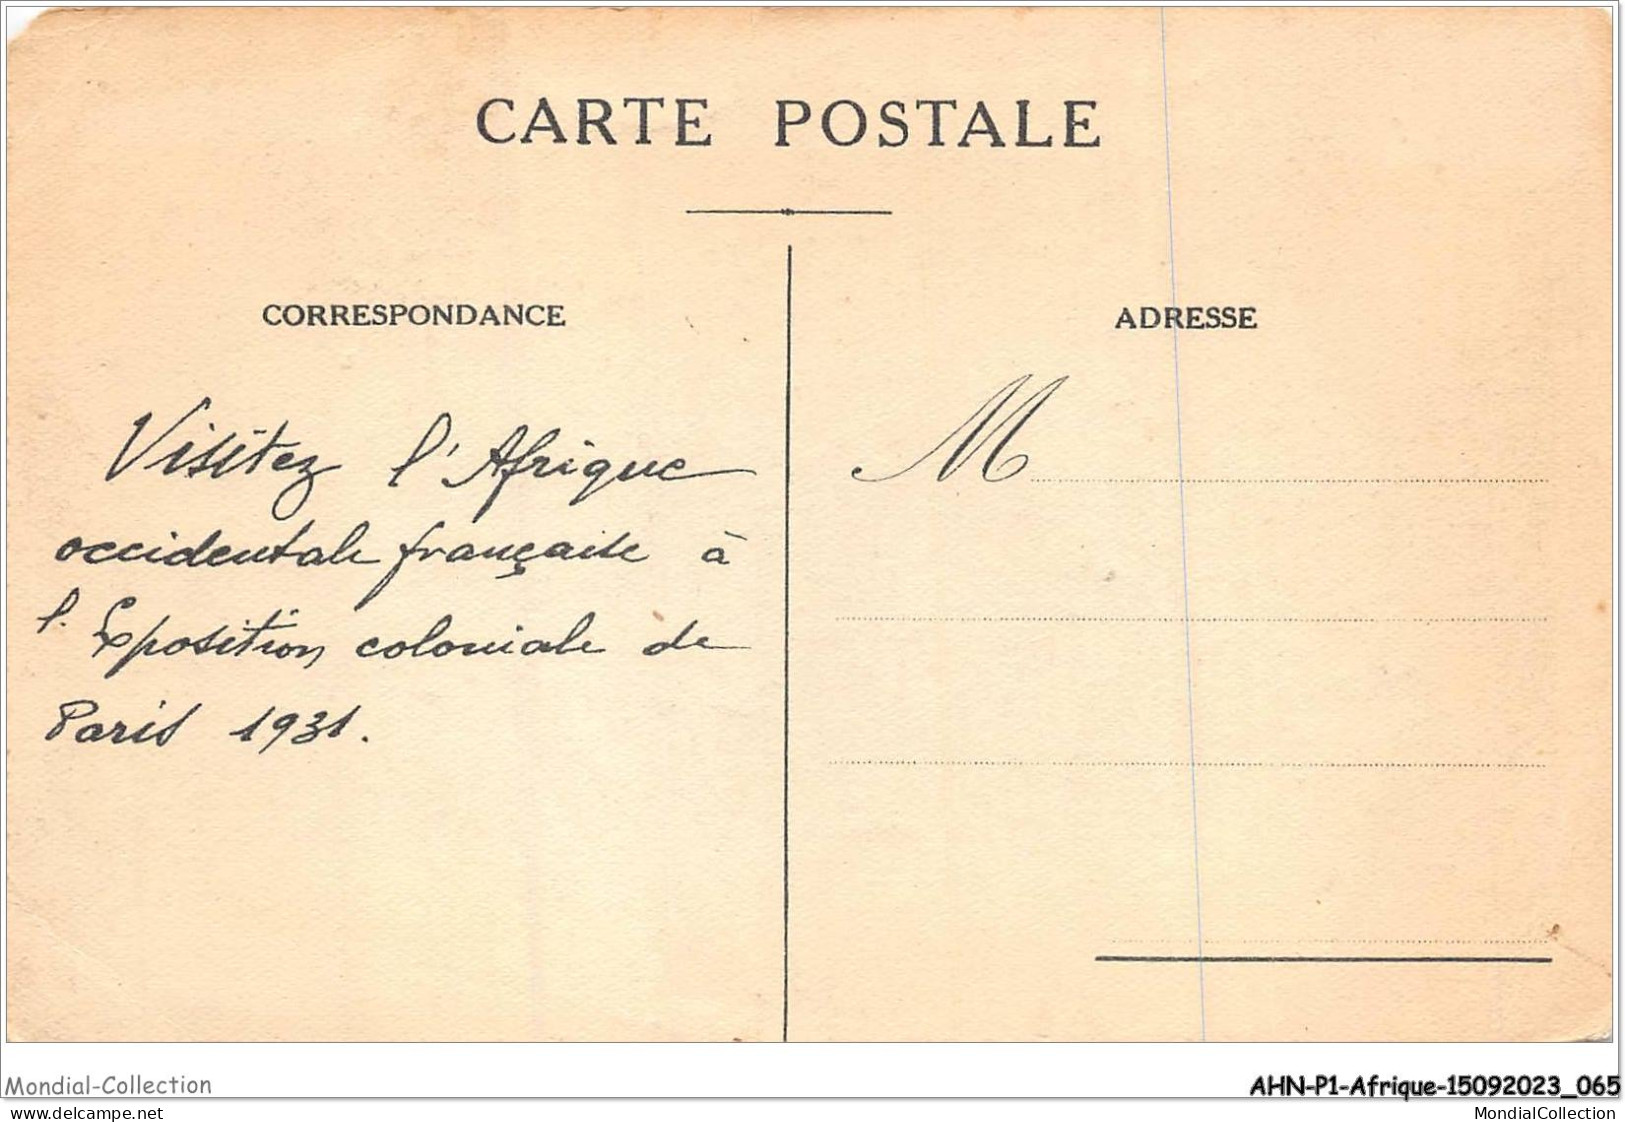 CARTE POSTALE
CORRESPONDANCE
Visitez l'Afrique
occidentale française à
l'Exposition coloniale de
Paris 1931.
ADRESSE
M
Mondial-Collection
AHN-P1-Afrique-15092023_065
www.delcampe.net
MondialCollection